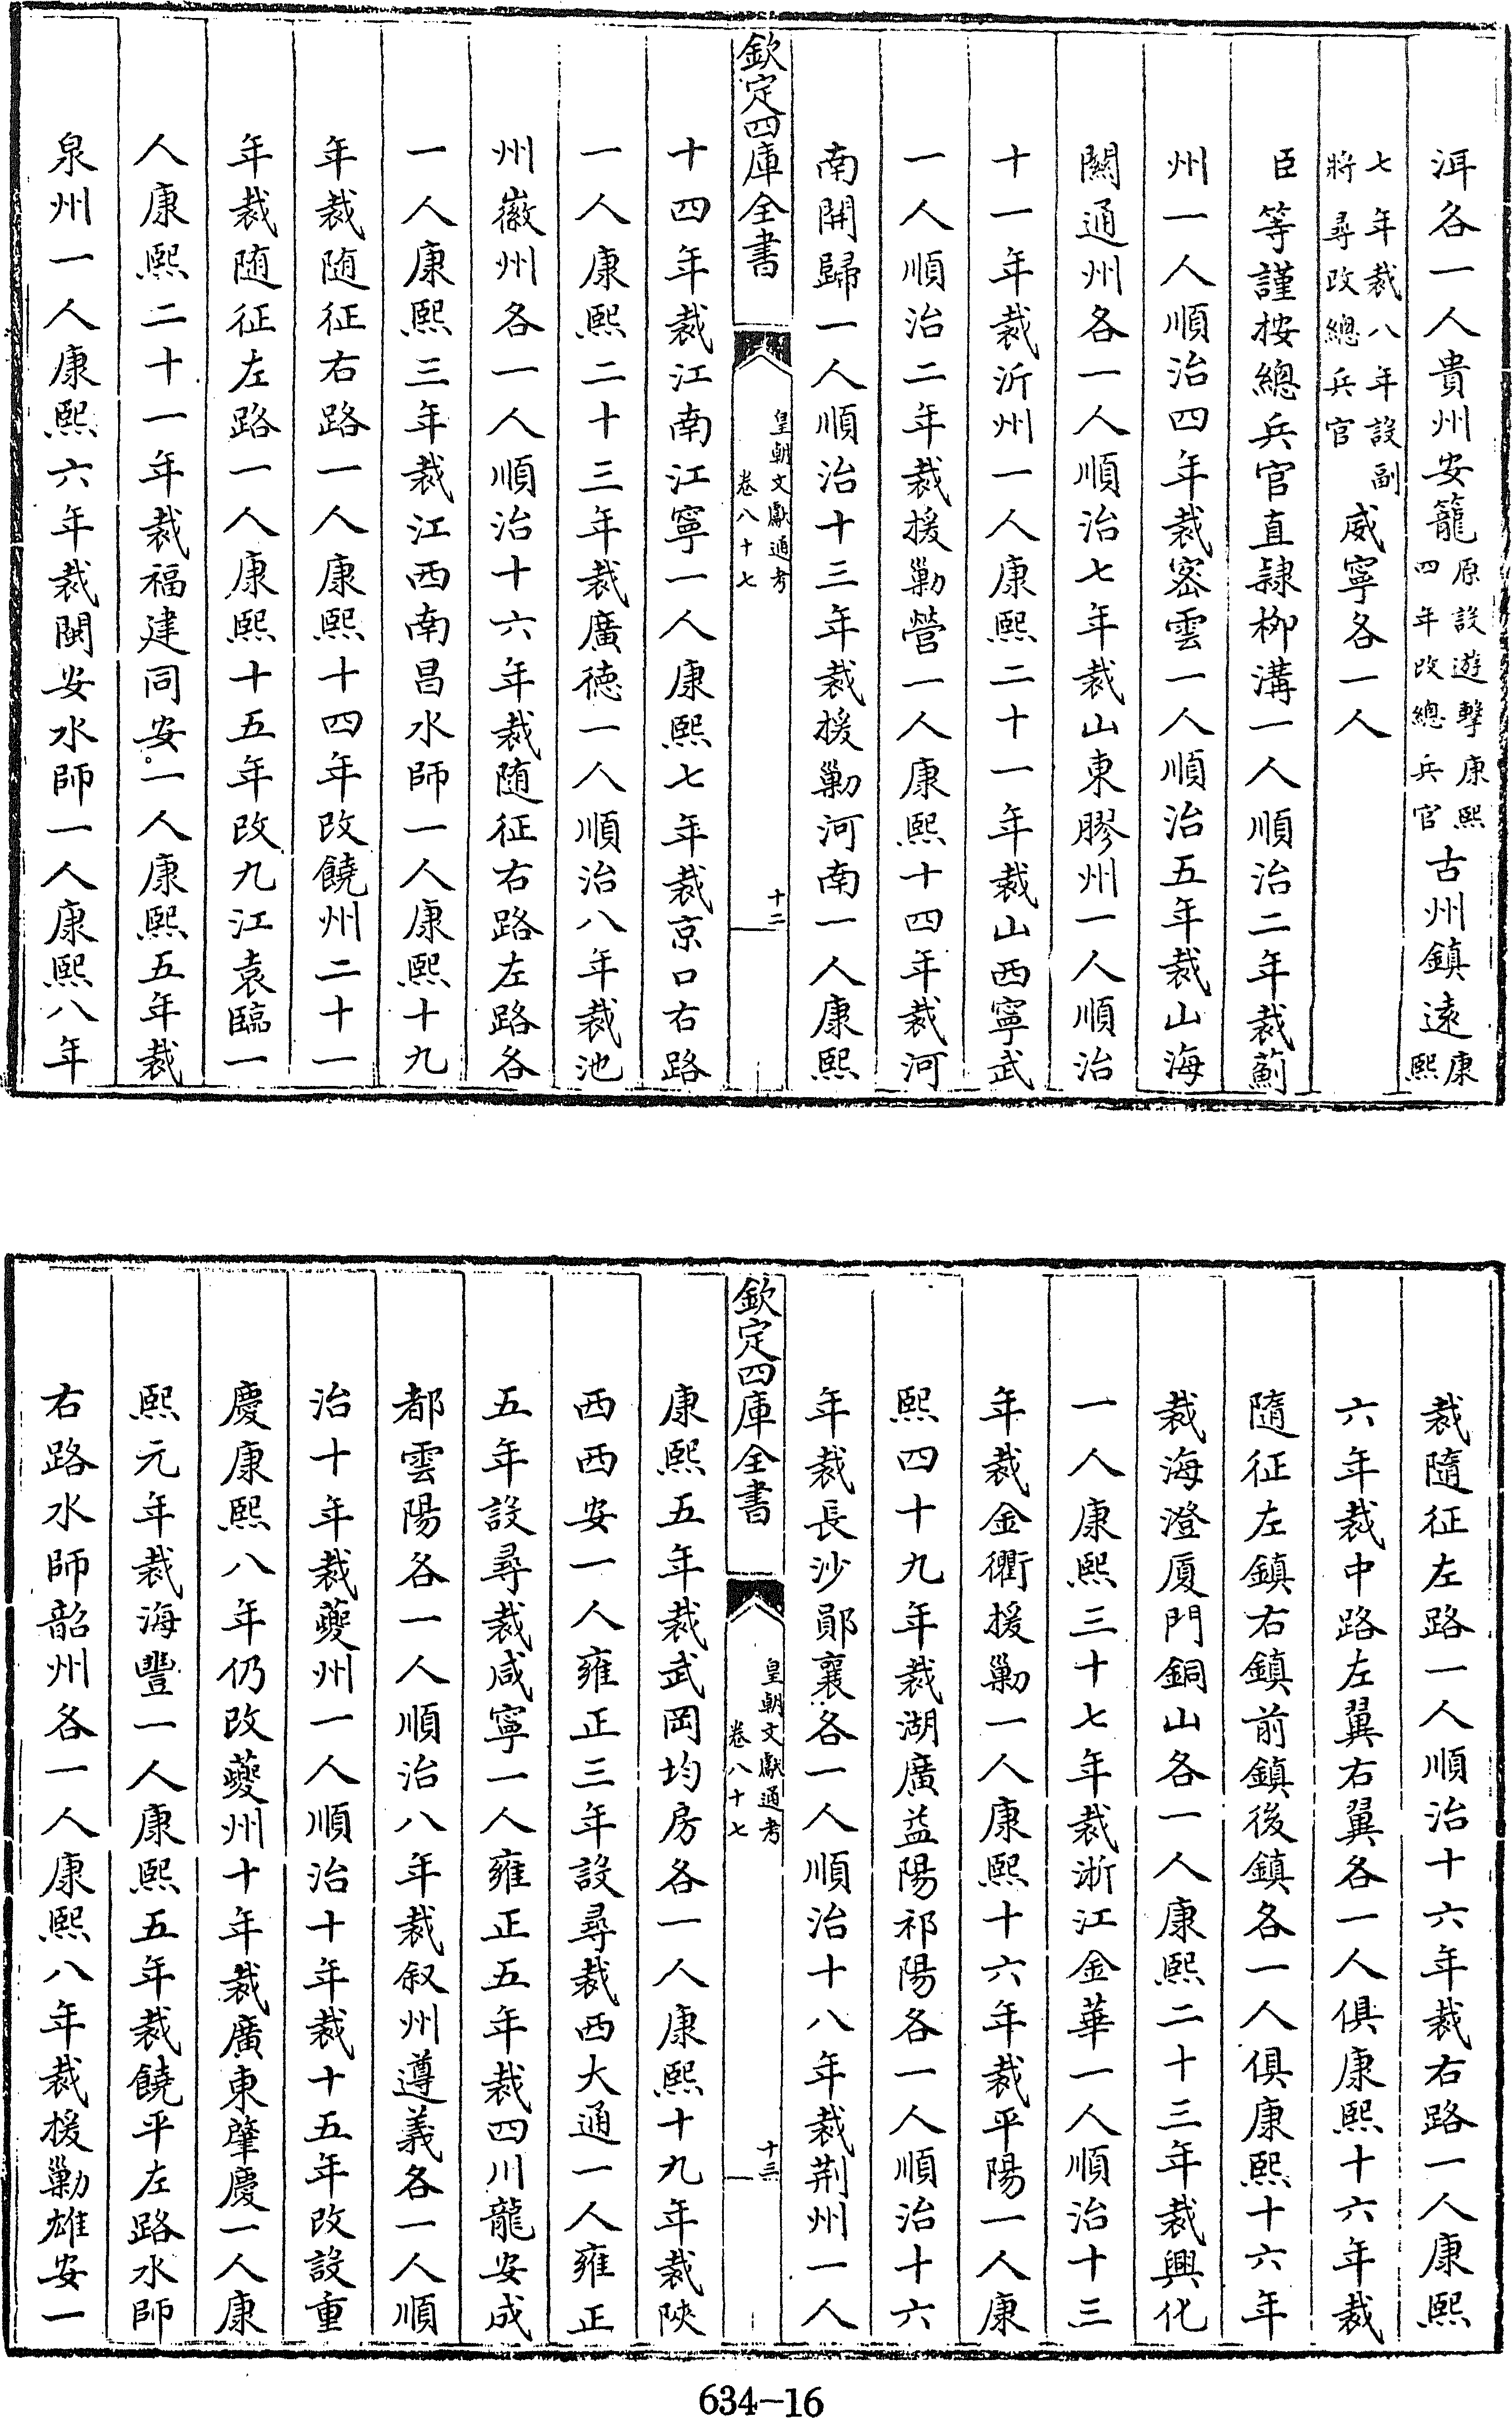 洱各一人貴州安籠原設遊擊康熙四年改總兵官古州鎮遠康熙
七年裁八年設副將尋改總兵官威寧各一人
臣等謹按總兵官直隸柳溝一人順治二年裁薊
州一人順治四年裁密雲一人順治五年裁山海
關通州各一人順治七年裁山東膠州一人順治
十一年裁沂州一人康熙二十一年裁山西寧武
一人順治二年裁援勦營一人康熙十四年裁河
南開歸一人順治十三年裁援勦河南一人康熙
欽定四庫全書
皇朝文獻通考
卷八十七
十二
十四年裁江南江寧一人康熙七年裁京口右路
一人康熙二十三年裁廣德一人順治八年裁池
州徽州各一人順治十六年裁随征右路左路各
一人康熙三年裁江西南昌水師一人康熙十九
年裁随征右路一人康熙十四年改饒州二十一
年裁随征左路一人康熙十五年改九江袁臨一
人康熙二十一年裁福建同安一人康熙五年裁
泉州一人康熙六年裁閩安水師一人康熙八年
裁隨征左路一人順治十六年裁右路一人康熙
六年裁中路左翼右翼各一人俱康熙十六年裁
隨征左鎮右鎮前鎮後鎮各一人俱康熙十六年
裁海澄厦門銅山各一人康熙二十三年裁興化
一人康熙三十七年裁浙江金華一人順治十三
年裁金衢援勦一人康熙十六年裁平陽一人康
熙四十九年裁湖廣益陽祁陽各一人順治十六
年裁長沙鄖襄各一人順治十八年裁荆州一人
欽定四庫全書
皇朝文獻通考
卷八十七
十三
康熙五年裁武岡均房各一人康熙十九年裁陝
西西安一人雍正三年設尋裁西大通一人雍正
五年設尋裁咸寧一人雍正五年裁四川龍安成
都雲陽各一人順治八年裁叙州遵義各一人順
治十年裁夔州一人順治十年裁十五年改設重
慶康熙八年仍改夔州十年裁廣東肇慶一人康
熙元年裁海豐一人康熙五年裁饒平左路水師
右路水師韶州各一人康熙八年裁援勦雄安一
634-16